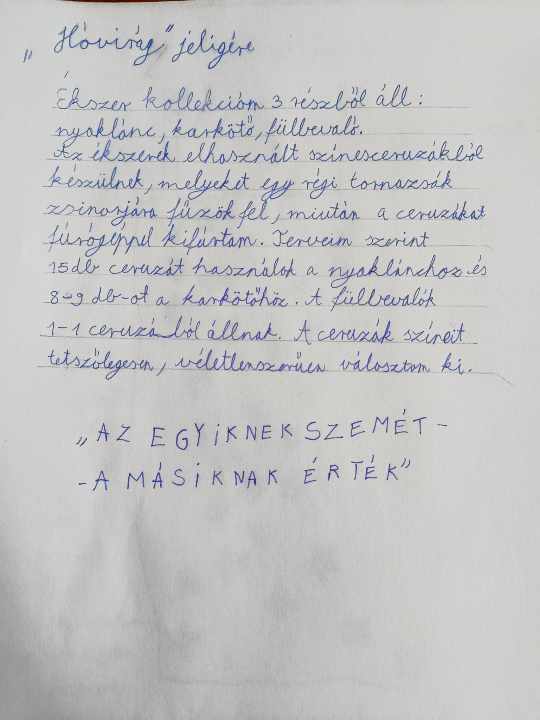 „Hóvirág" jeligére
Ékszer kollekcióm 3 részből áll:
nyaklánc, karkötő, fülbevaló.
Az ékszerek elhasznált színesceruzákból
készülnek, melyeket egy régi tornazsák
zsinorjára fűzök fel, miután a ceruzákat
fúrógéppel kifúrtam. Terveim szerint
15db ceruzát használok a nyaklánchoz és
8-9 db-ot a karkötőhöz. A fülbevalók
1-1 ceruzából állnak. A ceruzák színeit
tetszőlegesen, véletlenszerűen választom ki.
„AZ EGYIKNEK SZEMÉT-
-A MÁSIKNAK ÉRTÉK"